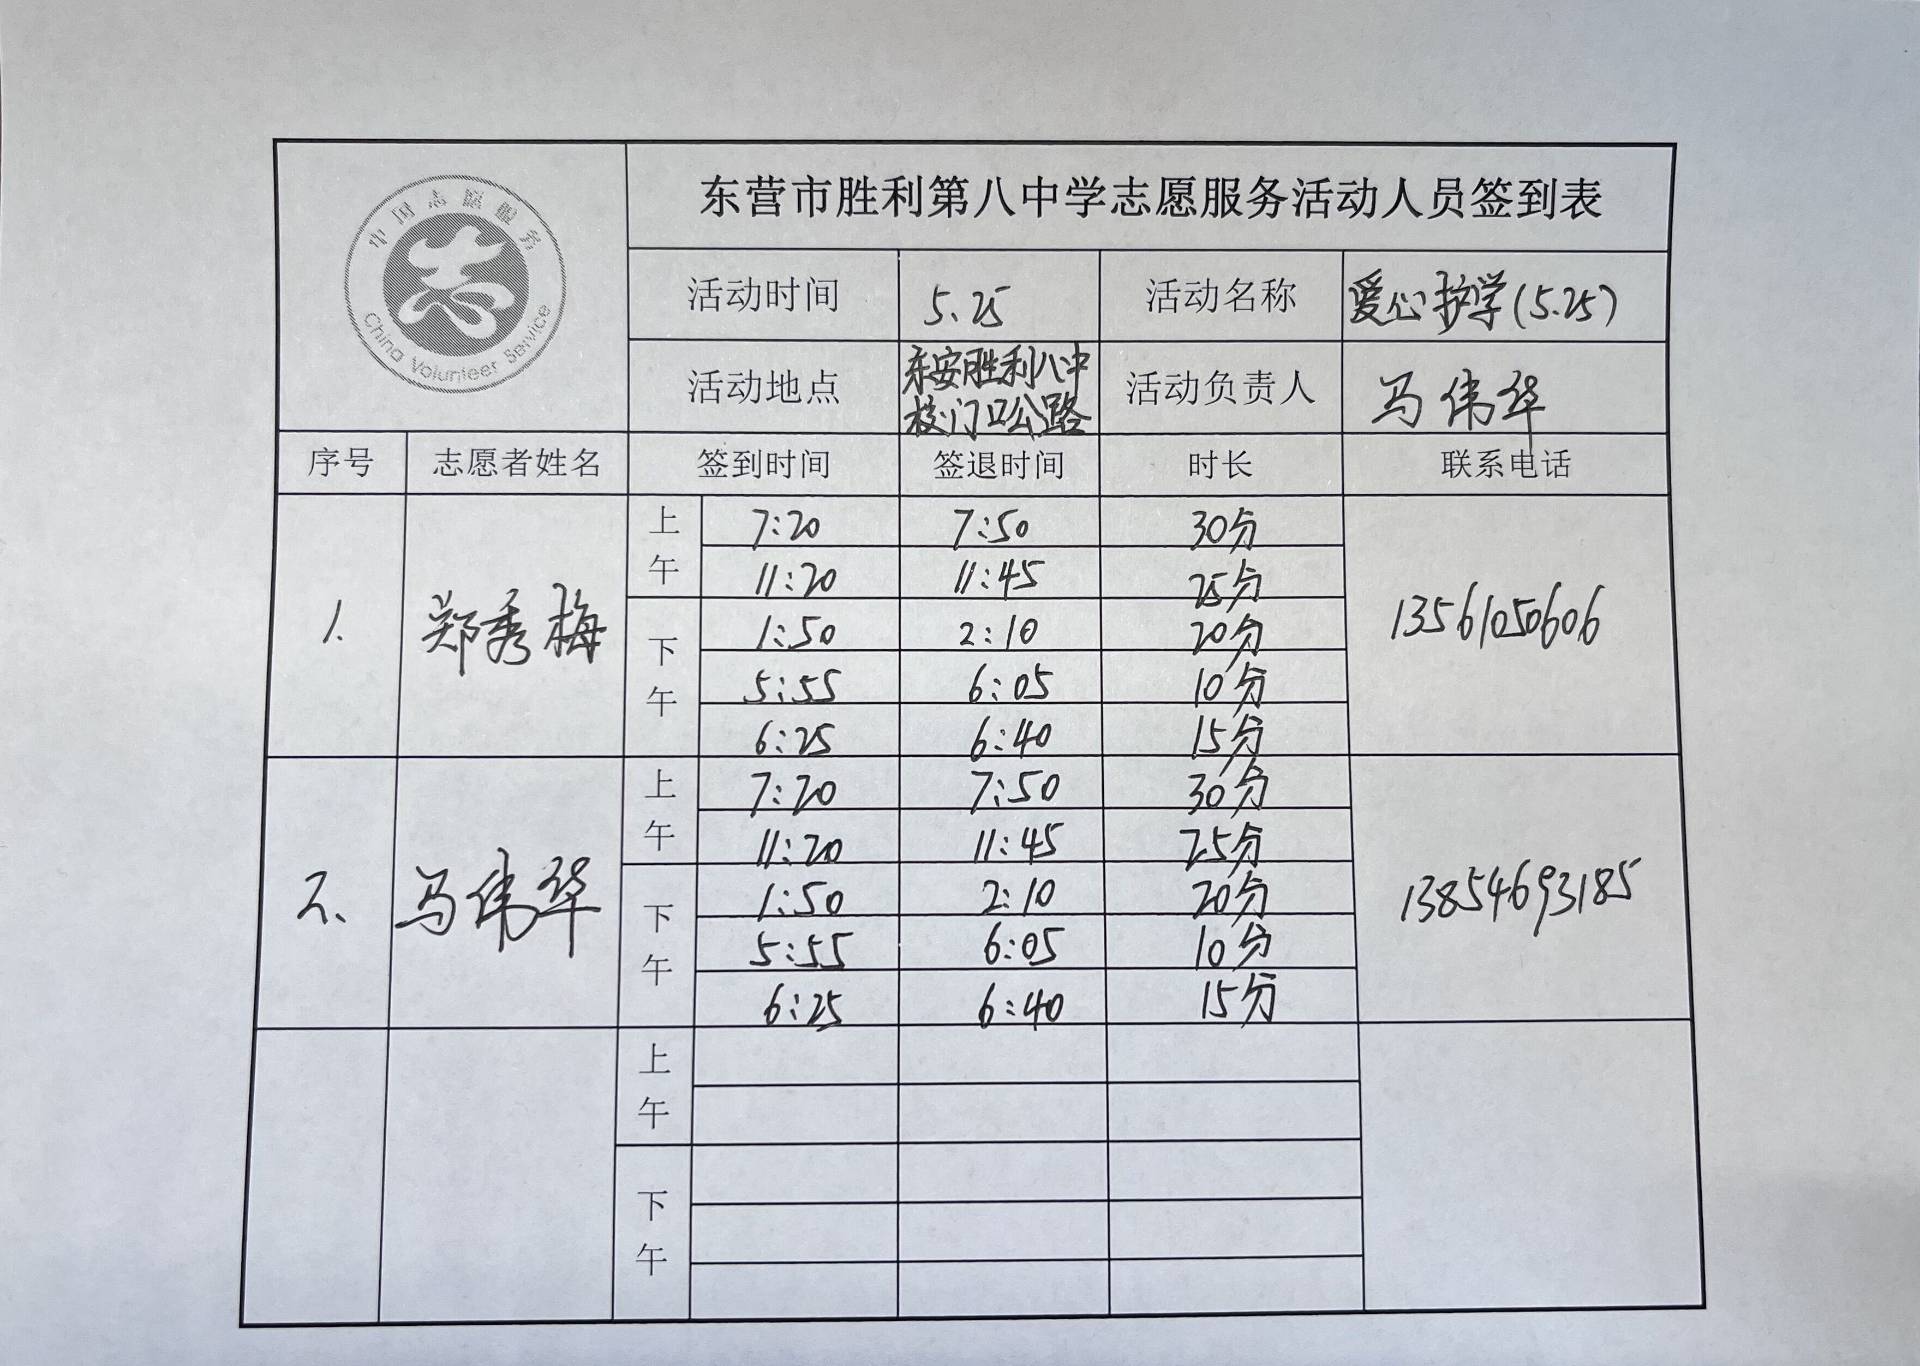 中国志愿服务
China Volunteer Service
东营市胜利第八中学志愿服务活动人员签到表
活动时间 5.25 活动名称 爱心护学(5.25)
活动地点 东安胜利八中
校门口公路 活动负责人 马伟华
序号 志愿者姓名 签到时间 签退时间 时长 联系电话
1. 郑秀梅 上午 7:20 7:50 30分 13561050606
11:20 11:45 25分
下午 1:50 2:10 20分
5:55 6:05 10分
6:25 6:40 15分
2. 马伟华 上午 7:20 7:50 30分 13854693185
11:20 11:45 25分
下午 1:50 2:10 20分
5:55 6:05 10分
6:25 6:40 15分
上午
下午